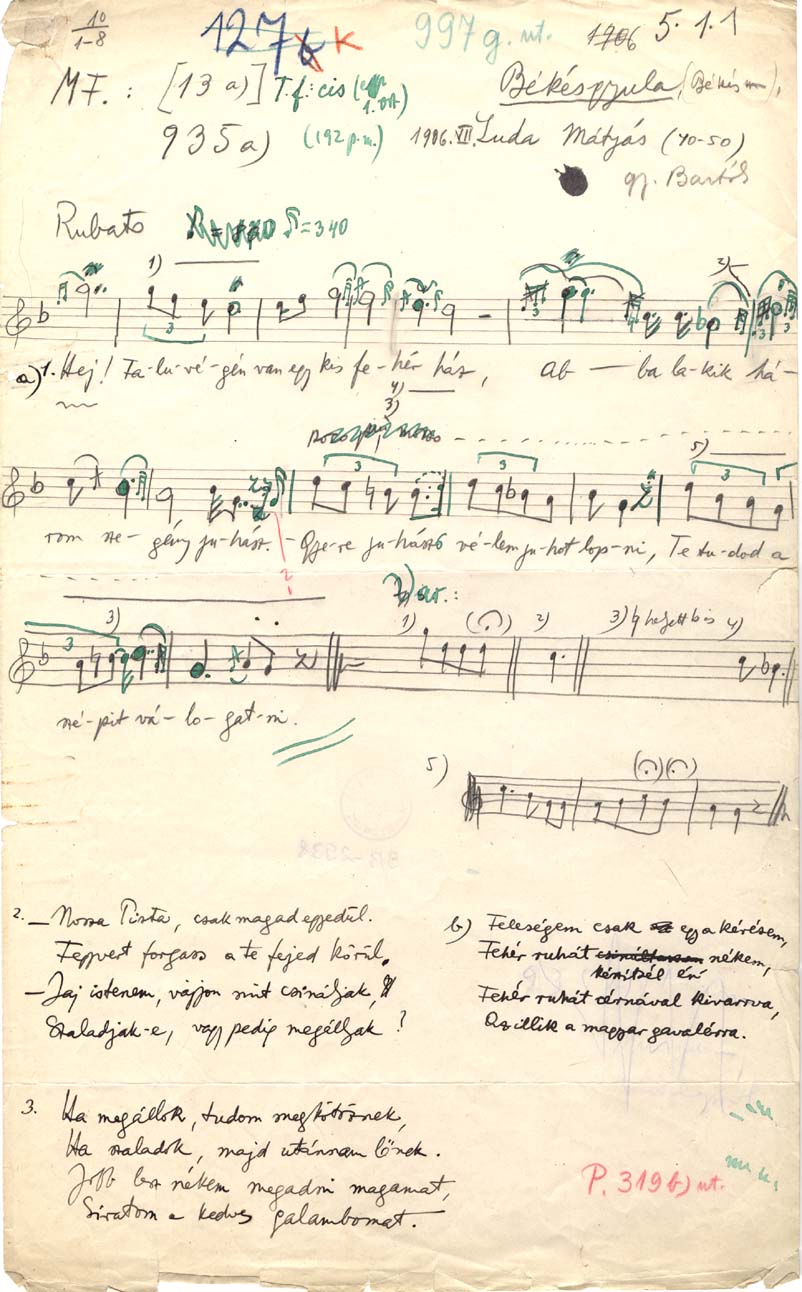 10
1-8
127 K
997 g. ut.
1906 5.1.1
M.F.: [13 a)] T.f.: cis
Békésgyula (Békés),
935 a) (192 p.m.) 1906.VII. Luda Mátyás (40-50)
gy. Bartók
Rubato = 340
1) 2)
a) 1. Hej! Fa-lu-vé-gén van egy kis fe-hér ház, ab-ba la-kik há-
4)
3)
5)
rom sze-gény ju-hász. - Gye-re ju-hász vé-lem ju-hot lop-ni, Te tu-dod a
2
3) Var.: 1) 2) 3) ♮ helyett ♭ is 4)
szé-pit vá-lo-gat-ni.
5)
2. - Nossza Pista, csak magad egyedül.
Fegyvert forgass a te fejed körül.
- Jaj istenem, vajjon mit csináljak,
Szaladjak-e, vagy pedig megálljak?
b) Feleségem csak egy a kérésem,
Fehér ruhát csináltasson nékem,
készitsél én
Fehér ruhát cérnával kivarrva,
Az illik a magyar gavalérra.
3. Ha megállok, tudom megkötöznek,
Ha szaladok, majd utánnam lőnek.
Jobb lesz nékem megadni magamat,
Siratom a kedves galambomat.
P. 319 b) ut.